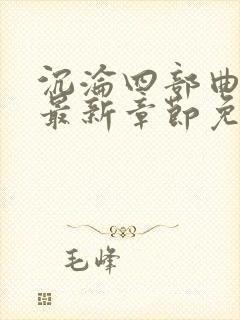 沉沦四部曲
最新章节免
毛峰